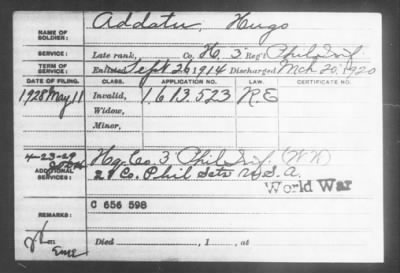 NAME OF SOLDIER: Addatu, Hugo
SERVICE: Late rank, Co. H, 3 Reg't Phil. Inf.
TERM OF SERVICE: Enlisted Sept 26 1914 Discharged Mch 20, 1920
DATE OF FILING. CLASS. APPLICATION NO. LAW. CERTIFICATE NO.
1928 May 11 Invalid, 1.613.523 R.E
Widow,
Minor,
4-23-29
ADDITIONAL SERVICES: Hq. Co. 3 Phil. Inf. (WW)
Co. Phil Scts U.S.A.
World War
C 656 598
REMARKS:
Died , 1 , at